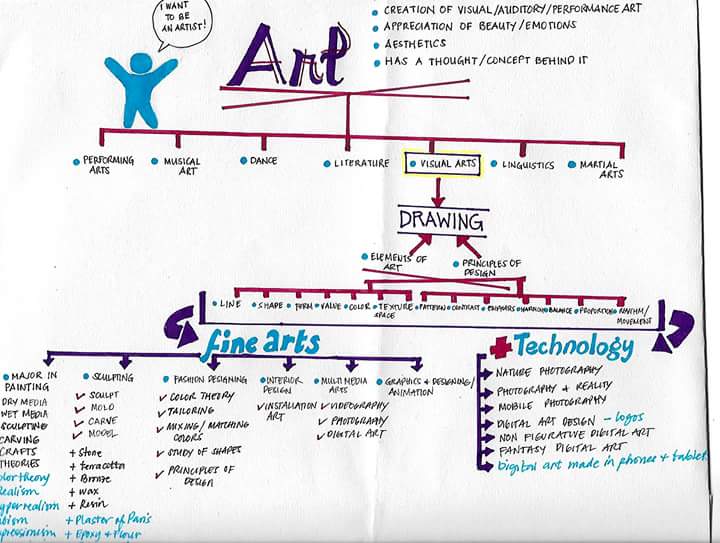 I WANT
TO BE
AN ARTIST!
Art
CREATION OF VISUAL/AUDITORY/PERFORMANCE ART
APPRECIATION OF BEAUTY/EMOTIONS
AESTHETICS
HAS A THOUGHT/CONCEPT BEHIND IT
PERFORMING
ARTS
MUSICAL
ART
DANCE
LITERATURE
VISUAL ARTS
LINGUISTICS
MARTIAL
ARTS
DRAWING
ELEMENTS OF
ART
PRINCIPLES OF
DESIGN
LINE
SHAPE
FORM
VALUE
COLOR
TEXTURE
SPACE
PATTERN
CONTRAST
EMPHASIS
HARMONY
BALANCE
PROPORTION
RHYTHM/
MOVEMENT
fine arts
MAJOR IN
PAINTING
DRY MEDIA
WET MEDIA
SCULPTING
CARVING
CRAFTS
THEORIES
olor theory
Realism
yperrealism
bism
pressionism
SCULPTING
SCULPT
MOLD
CARVE
MODEL
+ Stone
+ terracotta
+ Bronze
+ wax
+ Resin
+ Plaster of Paris
+ Epoxy + Flour
FASHION DESIGNING
COLOR THEORY
TAILORING
MIXING/MATCHING
COLORS
STUDY OF SHAPES
PRINCIPLES OF
DESIGN
INTERIOR
DESIGN
INSTALLATION
ART
MULTI MEDIA
ARTS
VIDEOGRAPHY
PHOTOGRAPHY
DIGITAL ART
GRAPHICS & DESIGNING/
ANIMATION
+ Technology
NATURE PHOTOGRAPHY
PHOTOGRAPHY & REALITY
MOBILE PHOTOGRAPHY
DIGITAL ART DESIGN - logos
NON FIGURATIVE DIGITAL ART
FANTASY DIGITAL ART
Digital art made in phones + tablet